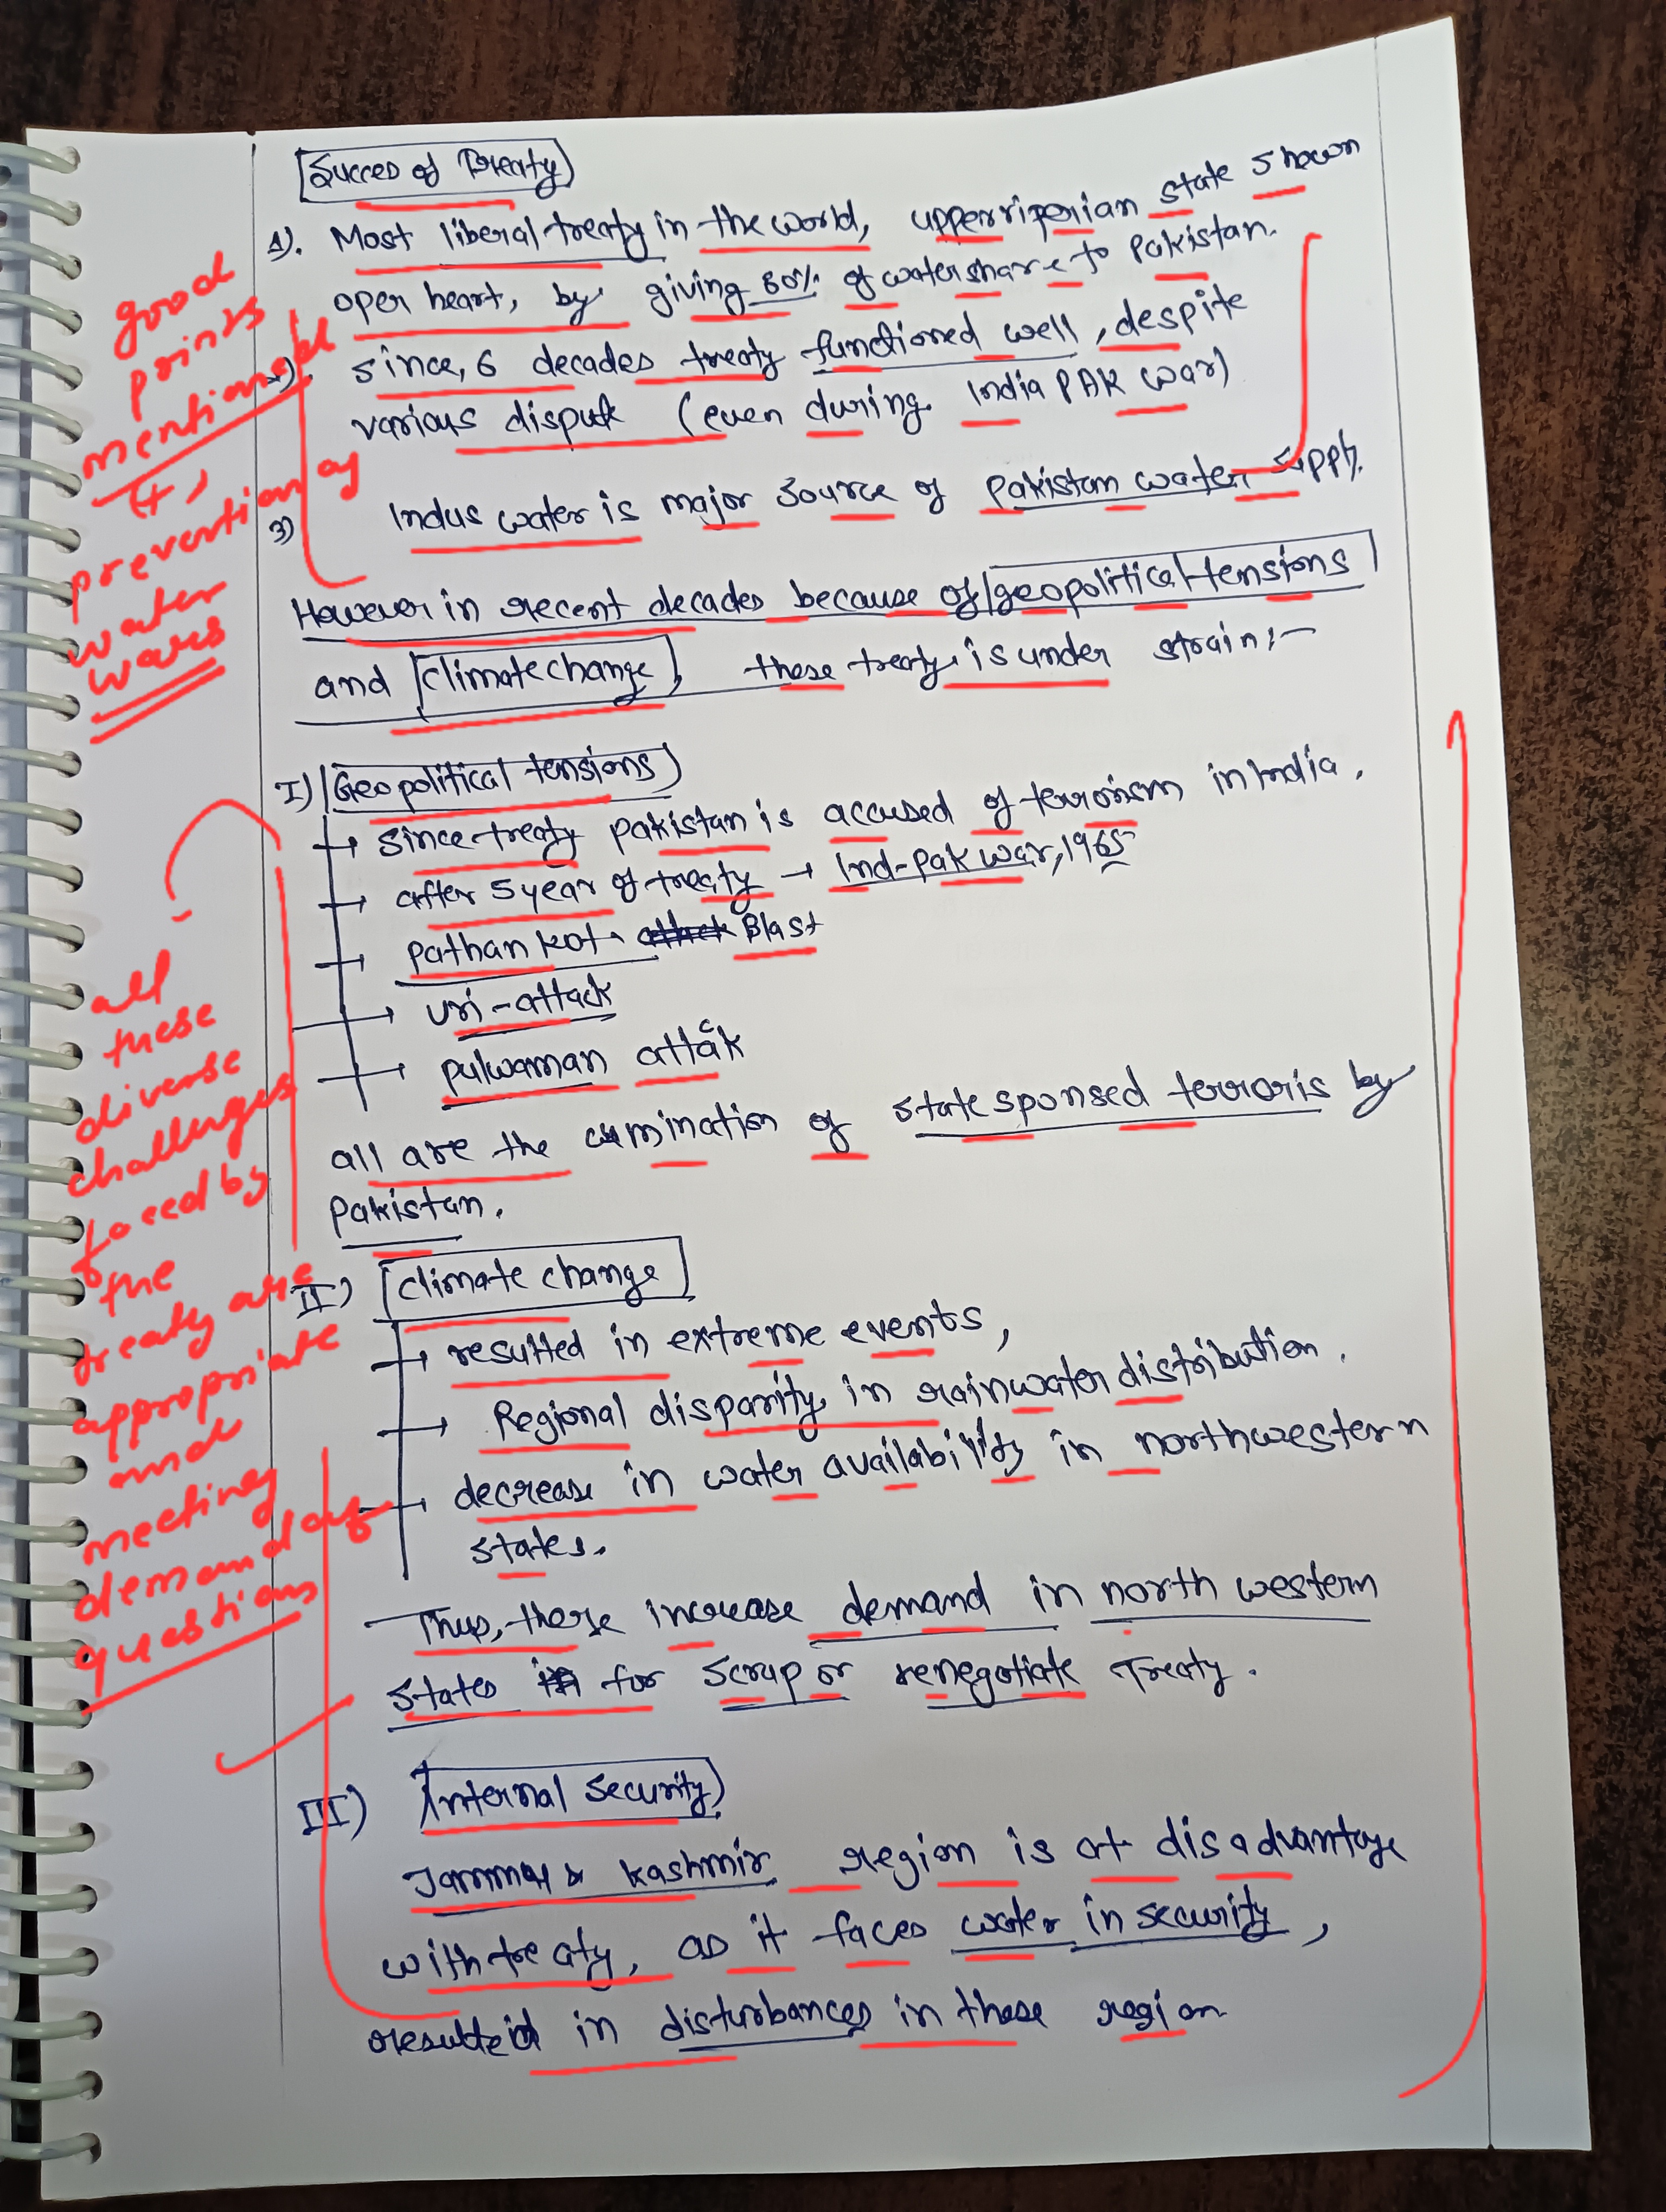 Succes of Treaty
1). Most liberal treaty in the world, upper riperian state shown
open heart, by giving 80% of water share to Pakistan.
2). since, 6 decades treaty functioned well, despite
various disput (even during India PAK war)
3) Indus water is major source of Pakistan water supply.
However in recent decades because of geopolitical tensions
and climate change, these treaty is under strain:-
I) Geopolitical tensions
→ since treaty pakistan is accused of terrorism in India.
→ after 5 year of treaty → Ind-Pak war, 1965
→ pathankot attack Blast
→ uri-attack
→ pulwaman attack
all are the cumination of state sponsed terroris by
Pakistan.
II) climate change
→ resulted in extreme events,
→ Regional disparity in rainwater distribution.
→ decrease in water availability in northwestern
states.
Thus, these increase demand in north western
states in for scrap or renegotiate Treaty.
III) Internal security
Jammu & Kashmir region is at disadvantage
with treaty, as it faces water in security,
resulted in disturbances in these region
good
points
mentioned
(+)
prevention of
water
wars
all
these
diverse
challenges
faced by
the
treaty are
appropriate
and
meeting
demand of
questions